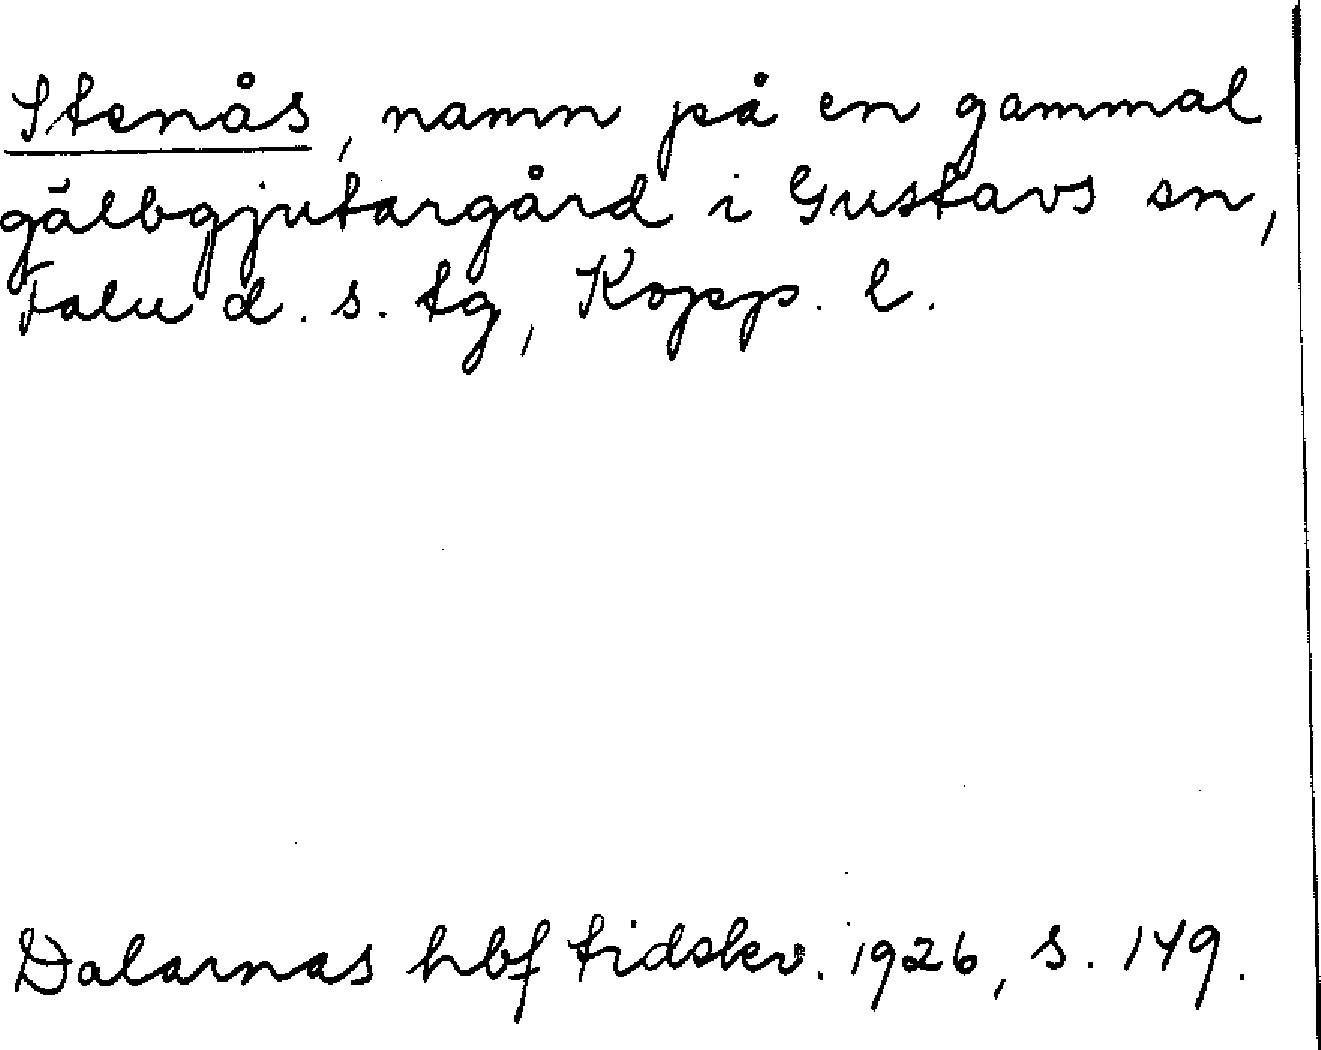 Stenås, namn på en gammal
gälbgjutargård i Gustavs sn,
Falu d. s. tg, Kopp. l.
Dalarnas hbf tidskr. 1926, s. 149.